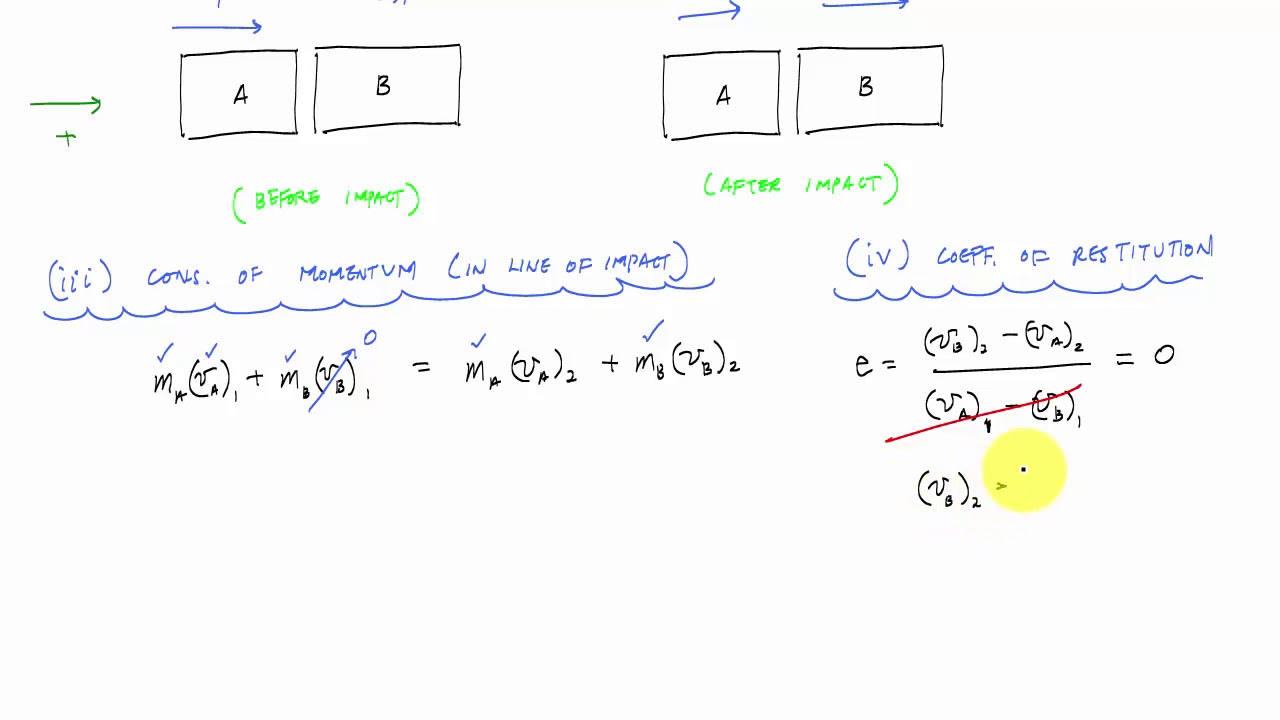 A B
A B
+
(BEFORE IMPACT)
(AFTER IMPACT)
(iii) CONS. OF MOMENTUM (IN LINE OF IMPACT)
(iv) COEFF. OF RESTITUTION
✓m_A ✓(v_A)_1 + ✓m_B (v_B)_1 0 = ✓m_A (v_A)_2 + ✓m_B (v_B)_2
e = ((v_B)_2 - (v_A)_2) / ((v_A)_1 - (v_B)_1) = 0
(v_B)_2 =